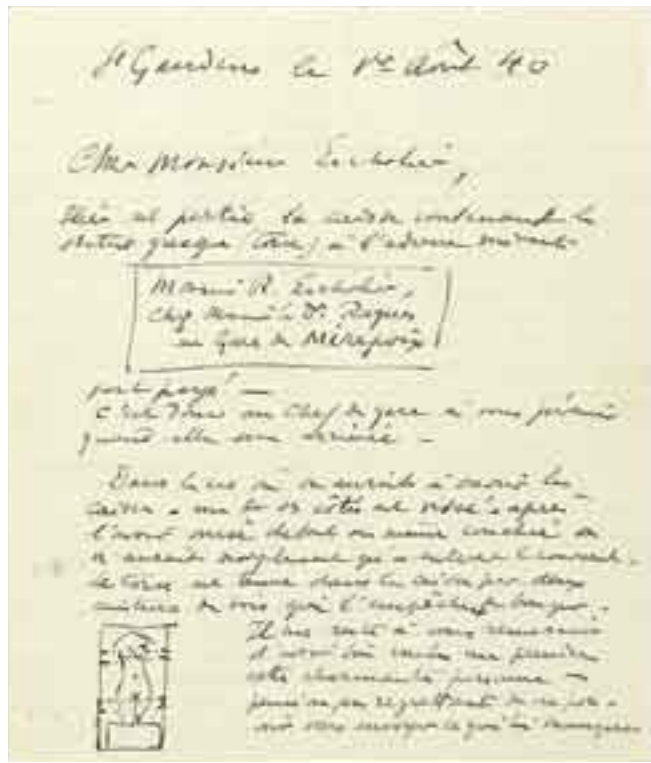 St Gaudens le 1er Août 40
Cher Monsieur Escholier,
est partie la caisse contenant la
statue grecque (torse) à l'adresse suivante
Monsieur R. Escholier,
chez Monsieur le Dr. Roques
en Gare de Mirepoix
port payé —
C'est donc au Chef de gare à vous prévenir
quand elle sera arrivée —
Dans le cas où on aurait à ouvrir la
caisse, un des côtés est vissé, après
l'avoir mise debout ou même couchée on
n'aurait simplement qu'à enlever le couvercle.
Le torse est tenu dans la caisse par deux
de bois qui l'empêchent de bouger.
Il me reste à vous remercier
d'avoir bien voulu me
cette charmante personne —
en regrettant de ne pas